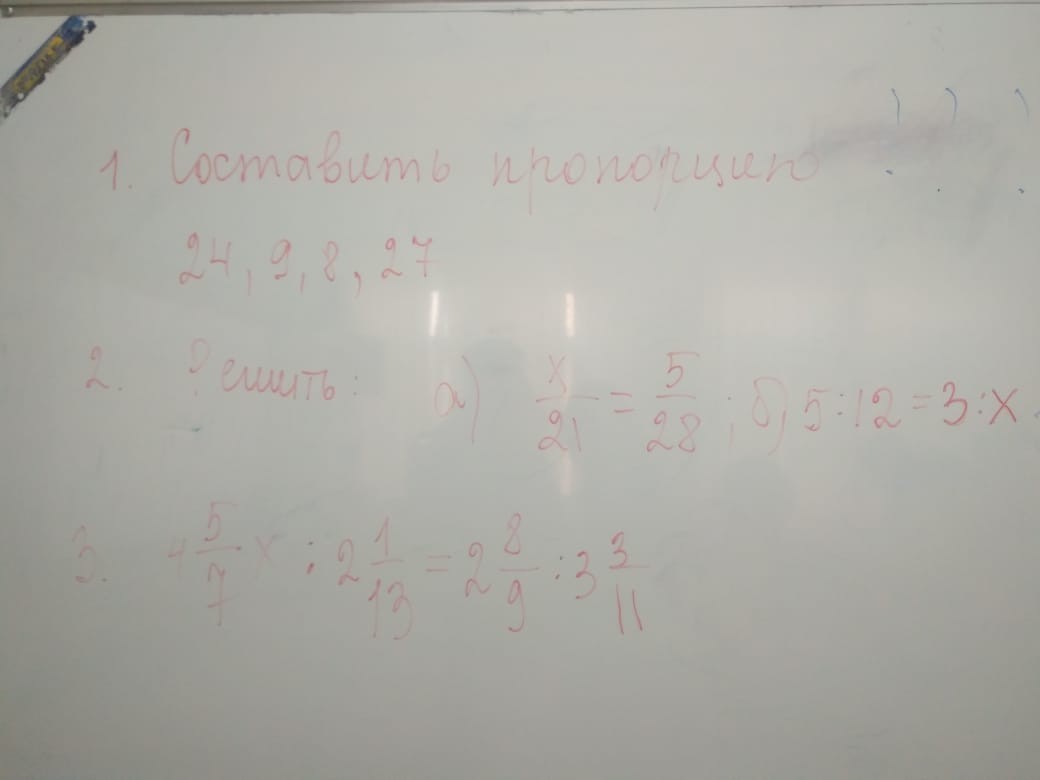 1. Составить пропорцию
24, 9, 8, 27
2. Решить: а) x/21 = 5/28 ; б) 5:12=3:x
3. 4 5/7 x : 2 1/13 = 2 8/9 : 3 3/11